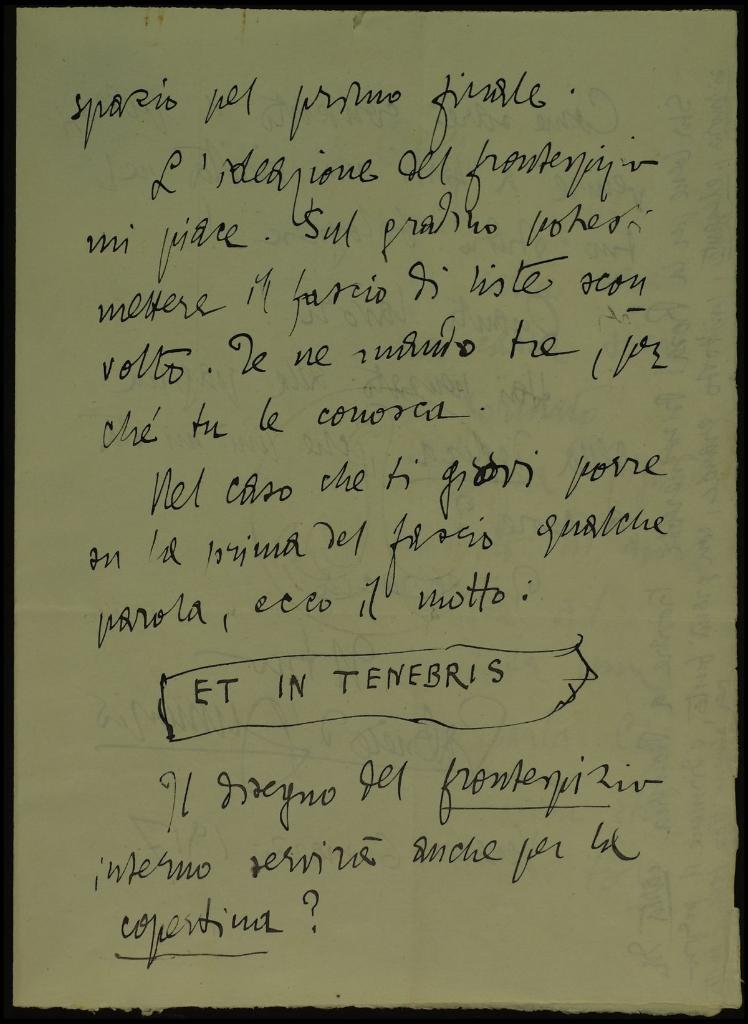 spazio pel primo finale.
L'ideazione del frontespizio
mi piace. Sul gradino potresti
mettere il fascio di liste scon
volto. Te ne mando tre, per
ché tu le conosca.
Nel caso che ti giovi porre
su la prima del fascio qualche
parola, ecco il motto:
ET IN TENEBRIS
Il disegno del frontespizio
interno servirà anche per la
copertina?